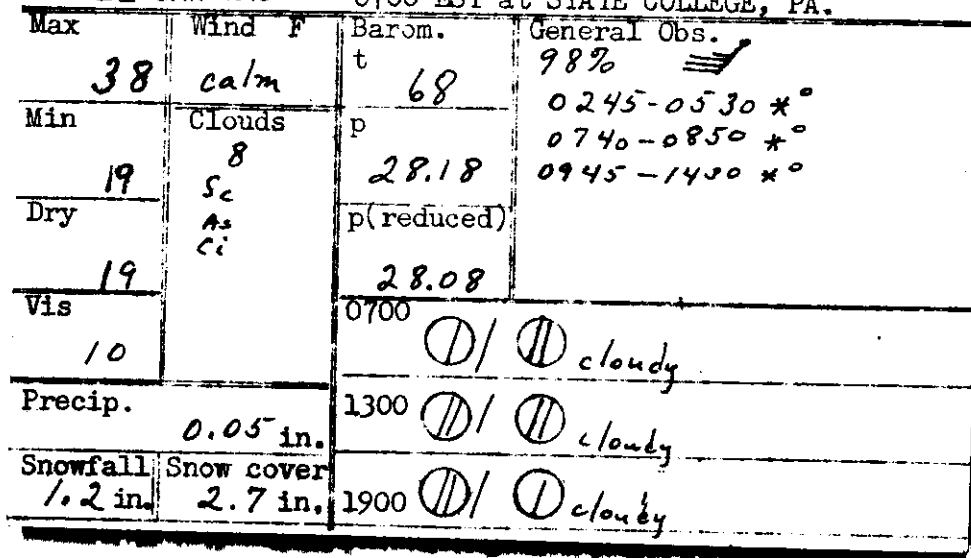 EST at STATE COLLEGE, PA.
Max
38
Wind F
calm
Barom.
t
68
General Obs.
98%
0245-0530 *°
0740-0850 *°
0945-1430 *°
Min
19
Clouds
8
Sc
As
Ci
p
28.18
Dry
19
p(reduced)
28.08
Vis
10
0700 / cloudy
Precip.
0.05 in.
1300 / cloudy
Snowfall
1.2 in.
Snow cover
2.7 in.
1900 / cloudy